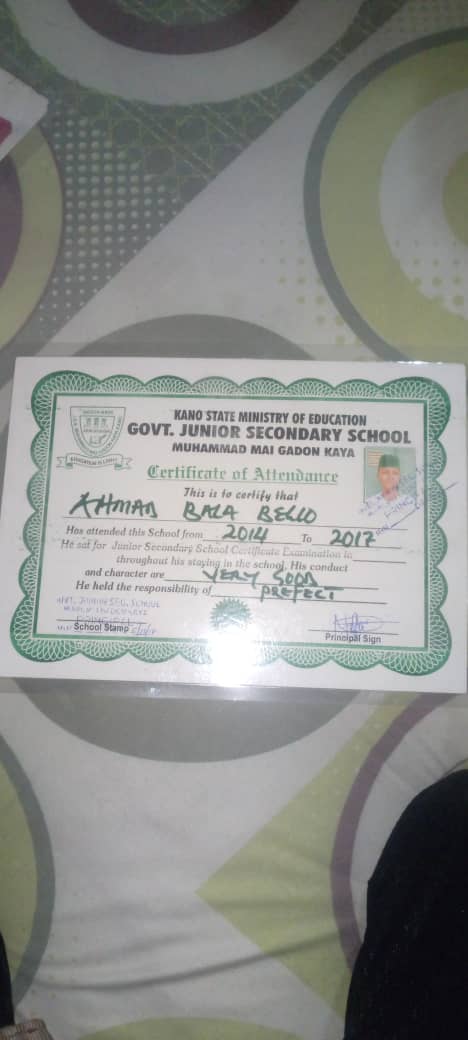 KANO STATE MINISTRY OF EDUCATION
GOVT. JUNIOR SECONDARY SCHOOL
MUHAMMAD MAI GADON KAYA
Certificate of Attendance
This is to certify that
AHMAD BALA BELLO
Has attended this School from 2014 To 2017
He sat for Junior Secondary School Certificate Examination in
throughout his staying in the school. His conduct
and character are VERY GOOD
He held the responsibility of PREFECT
School Stamp
Principal Sign